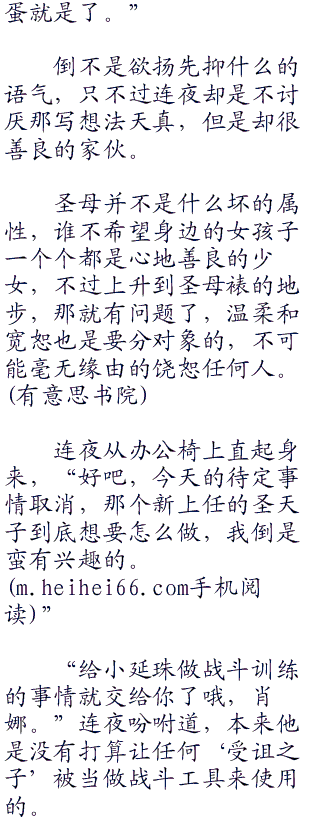 蛋就是了。”
倒不是欲扬先抑什么的
语气，只不过连夜却是不讨
厌那写想法天真，但是却很
善良的家伙。
圣母并不是什么坏的属
性，谁不希望身边的女孩子
一个个都是心地善良的少
女，不过上升到圣母裱的地
步，那就有问题了，温柔和
宽恕也是要分对象的，不可
能毫无缘由的饶恕任何人。
(有意思书院)
连夜从办公椅上直起身
来，“好吧，今天的待定事
情取消，那个新上任的圣天
子到底想要怎么做，我倒是
蛮有兴趣的。
(m.heihei66.com手机阅
读)”
“给小延珠做战斗训练
的事情就交给你了哦，肖
娜。”连夜吩咐道，本来他
是没有打算让任何‘受诅之
子’被当做战斗工具来使用
的。